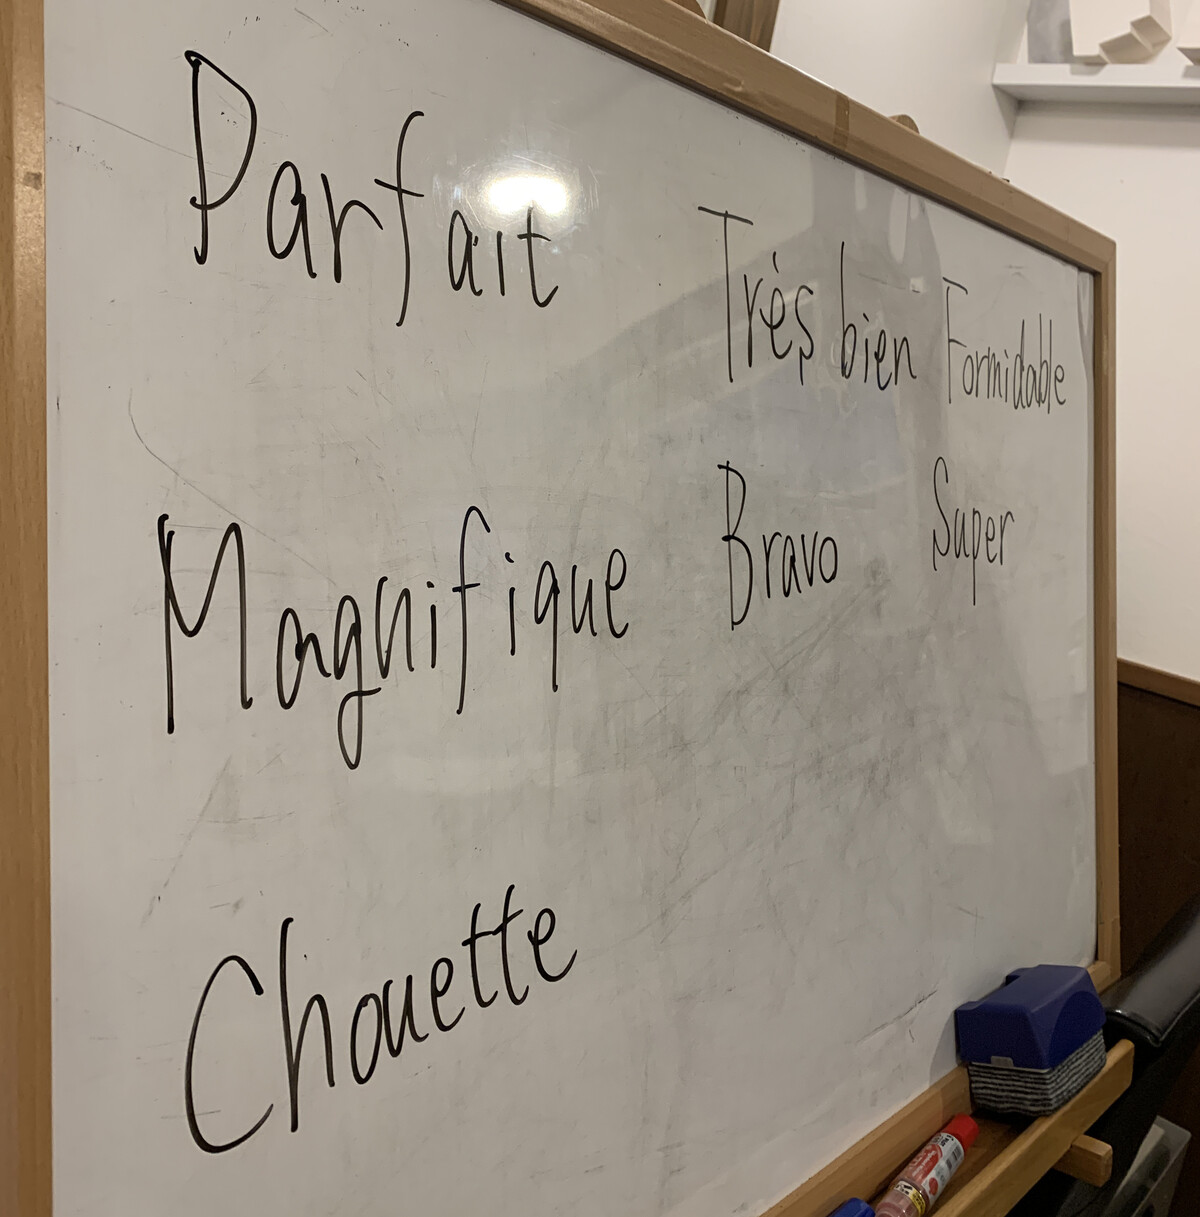 Parfait
Très bien
Formidable
Magnifique
Bravo
Super
Chouette